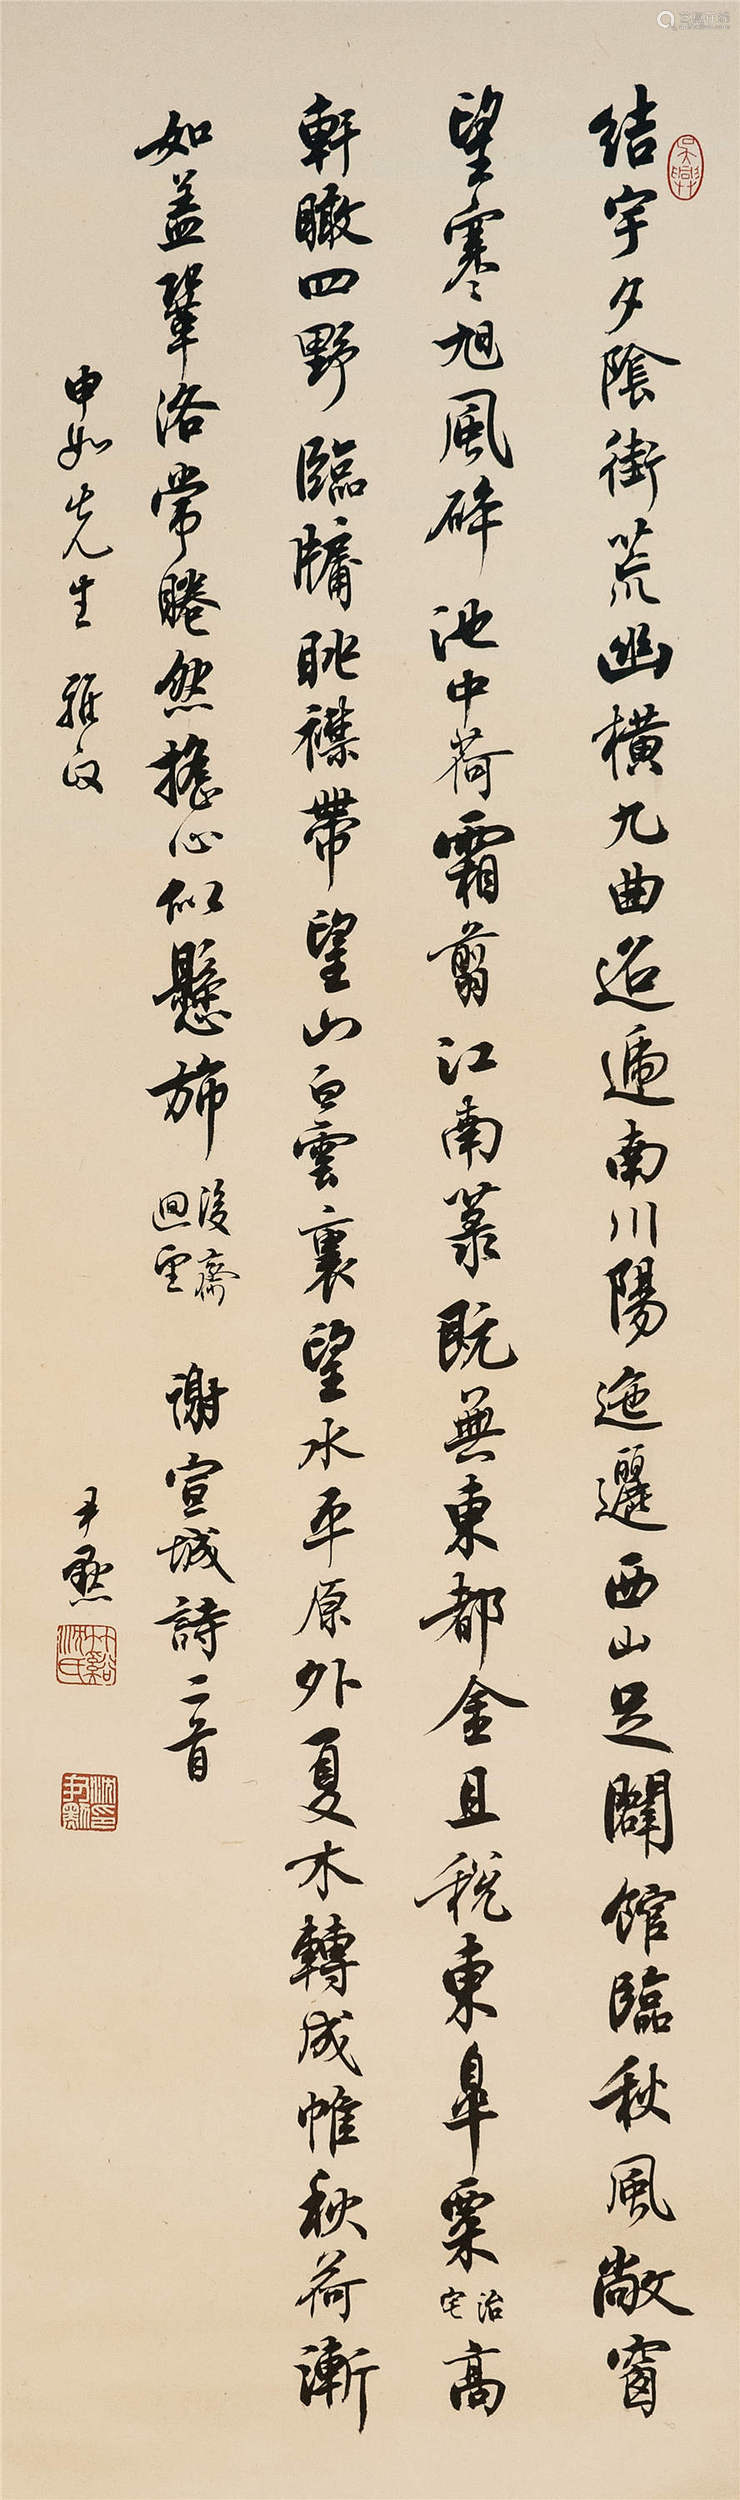 結宇夕陰街荒幽橫九曲迢遞南川陽迤邐西山足闢館臨秋風敞窗
望寒旭風碎池中荷霜翦江南菉既無東都金且稅東皋粟 治宅 高
軒瞰四野臨牖眺襟帶望山白雲裏望水平原外夏木轉成帷秋荷漸
如蓋鞏洛常睠然搖心似懸旆 後齋迴望 謝宣城詩二首
申如先生 雅政
尹默
竹谿沈氏
沈尹默